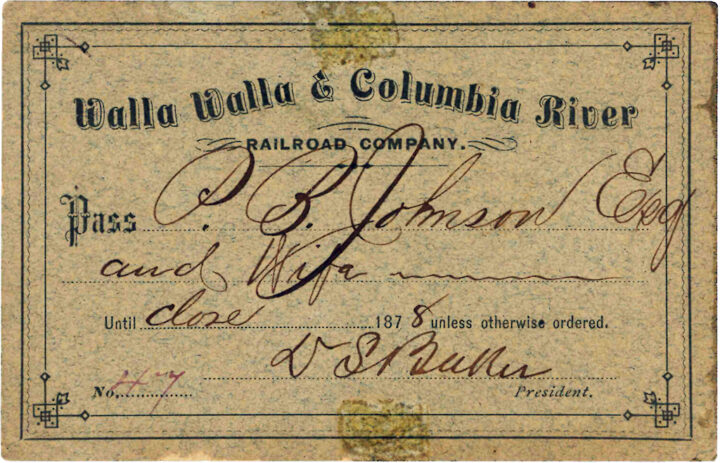 Walla Walla & Columbia River
RAILROAD COMPANY.
Pass P. B. Johnson Esq
and Wife
Until close 1878 unless otherwise ordered.
D S Baker
No. 47 President.